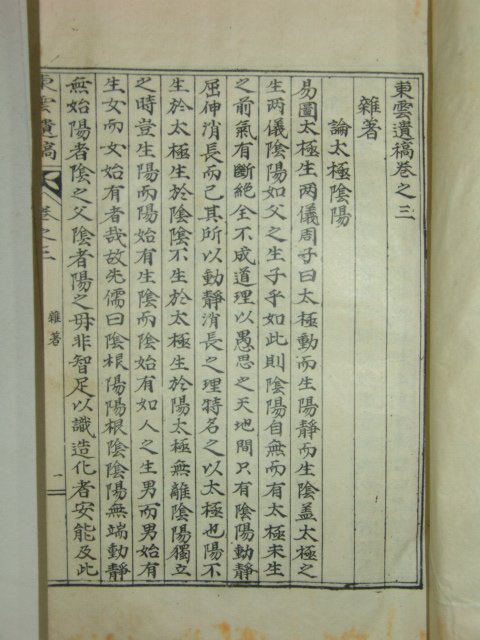 東雲遺稿卷之三
雜著
論太極陰陽
易圖太極生两儀周子曰太極動而生陽靜而生陰盖太極之
生两儀陰陽如父之生子乎如此則陰陽自無而有太極未生
之前氣有斷絕全不成道理以愚思之天地間只有陰陽動靜
屈伸消長而已其所以動靜消長之理特名之以太極也陽不
生於太極生於陰陰不生於太極生於陽太極無離陰陽獨立
之時豈生陽而陽始有生陰而陰始有如人之生男而男始有
生女而女始有者哉故先儒曰陰根陽陽根陰陰陽無端動靜
無始陽者陰之父陰者陽之母非智足以識造化者安能及此
東雲遺稿
卷之三
雜著
一